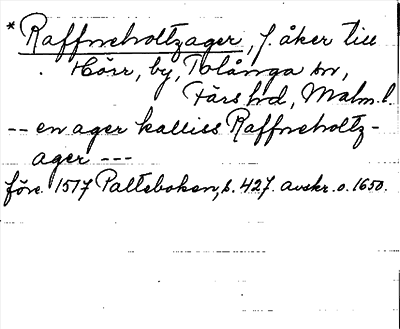 * Raffneholtzager, f. åker till
Hörr, by, Tolånga sn,
Färs hd, Malm. l.
-- en ager kalliss Raffneholtz-
ager ---
före 1517 Palteboken, s. 427. avskr. o. 1650.